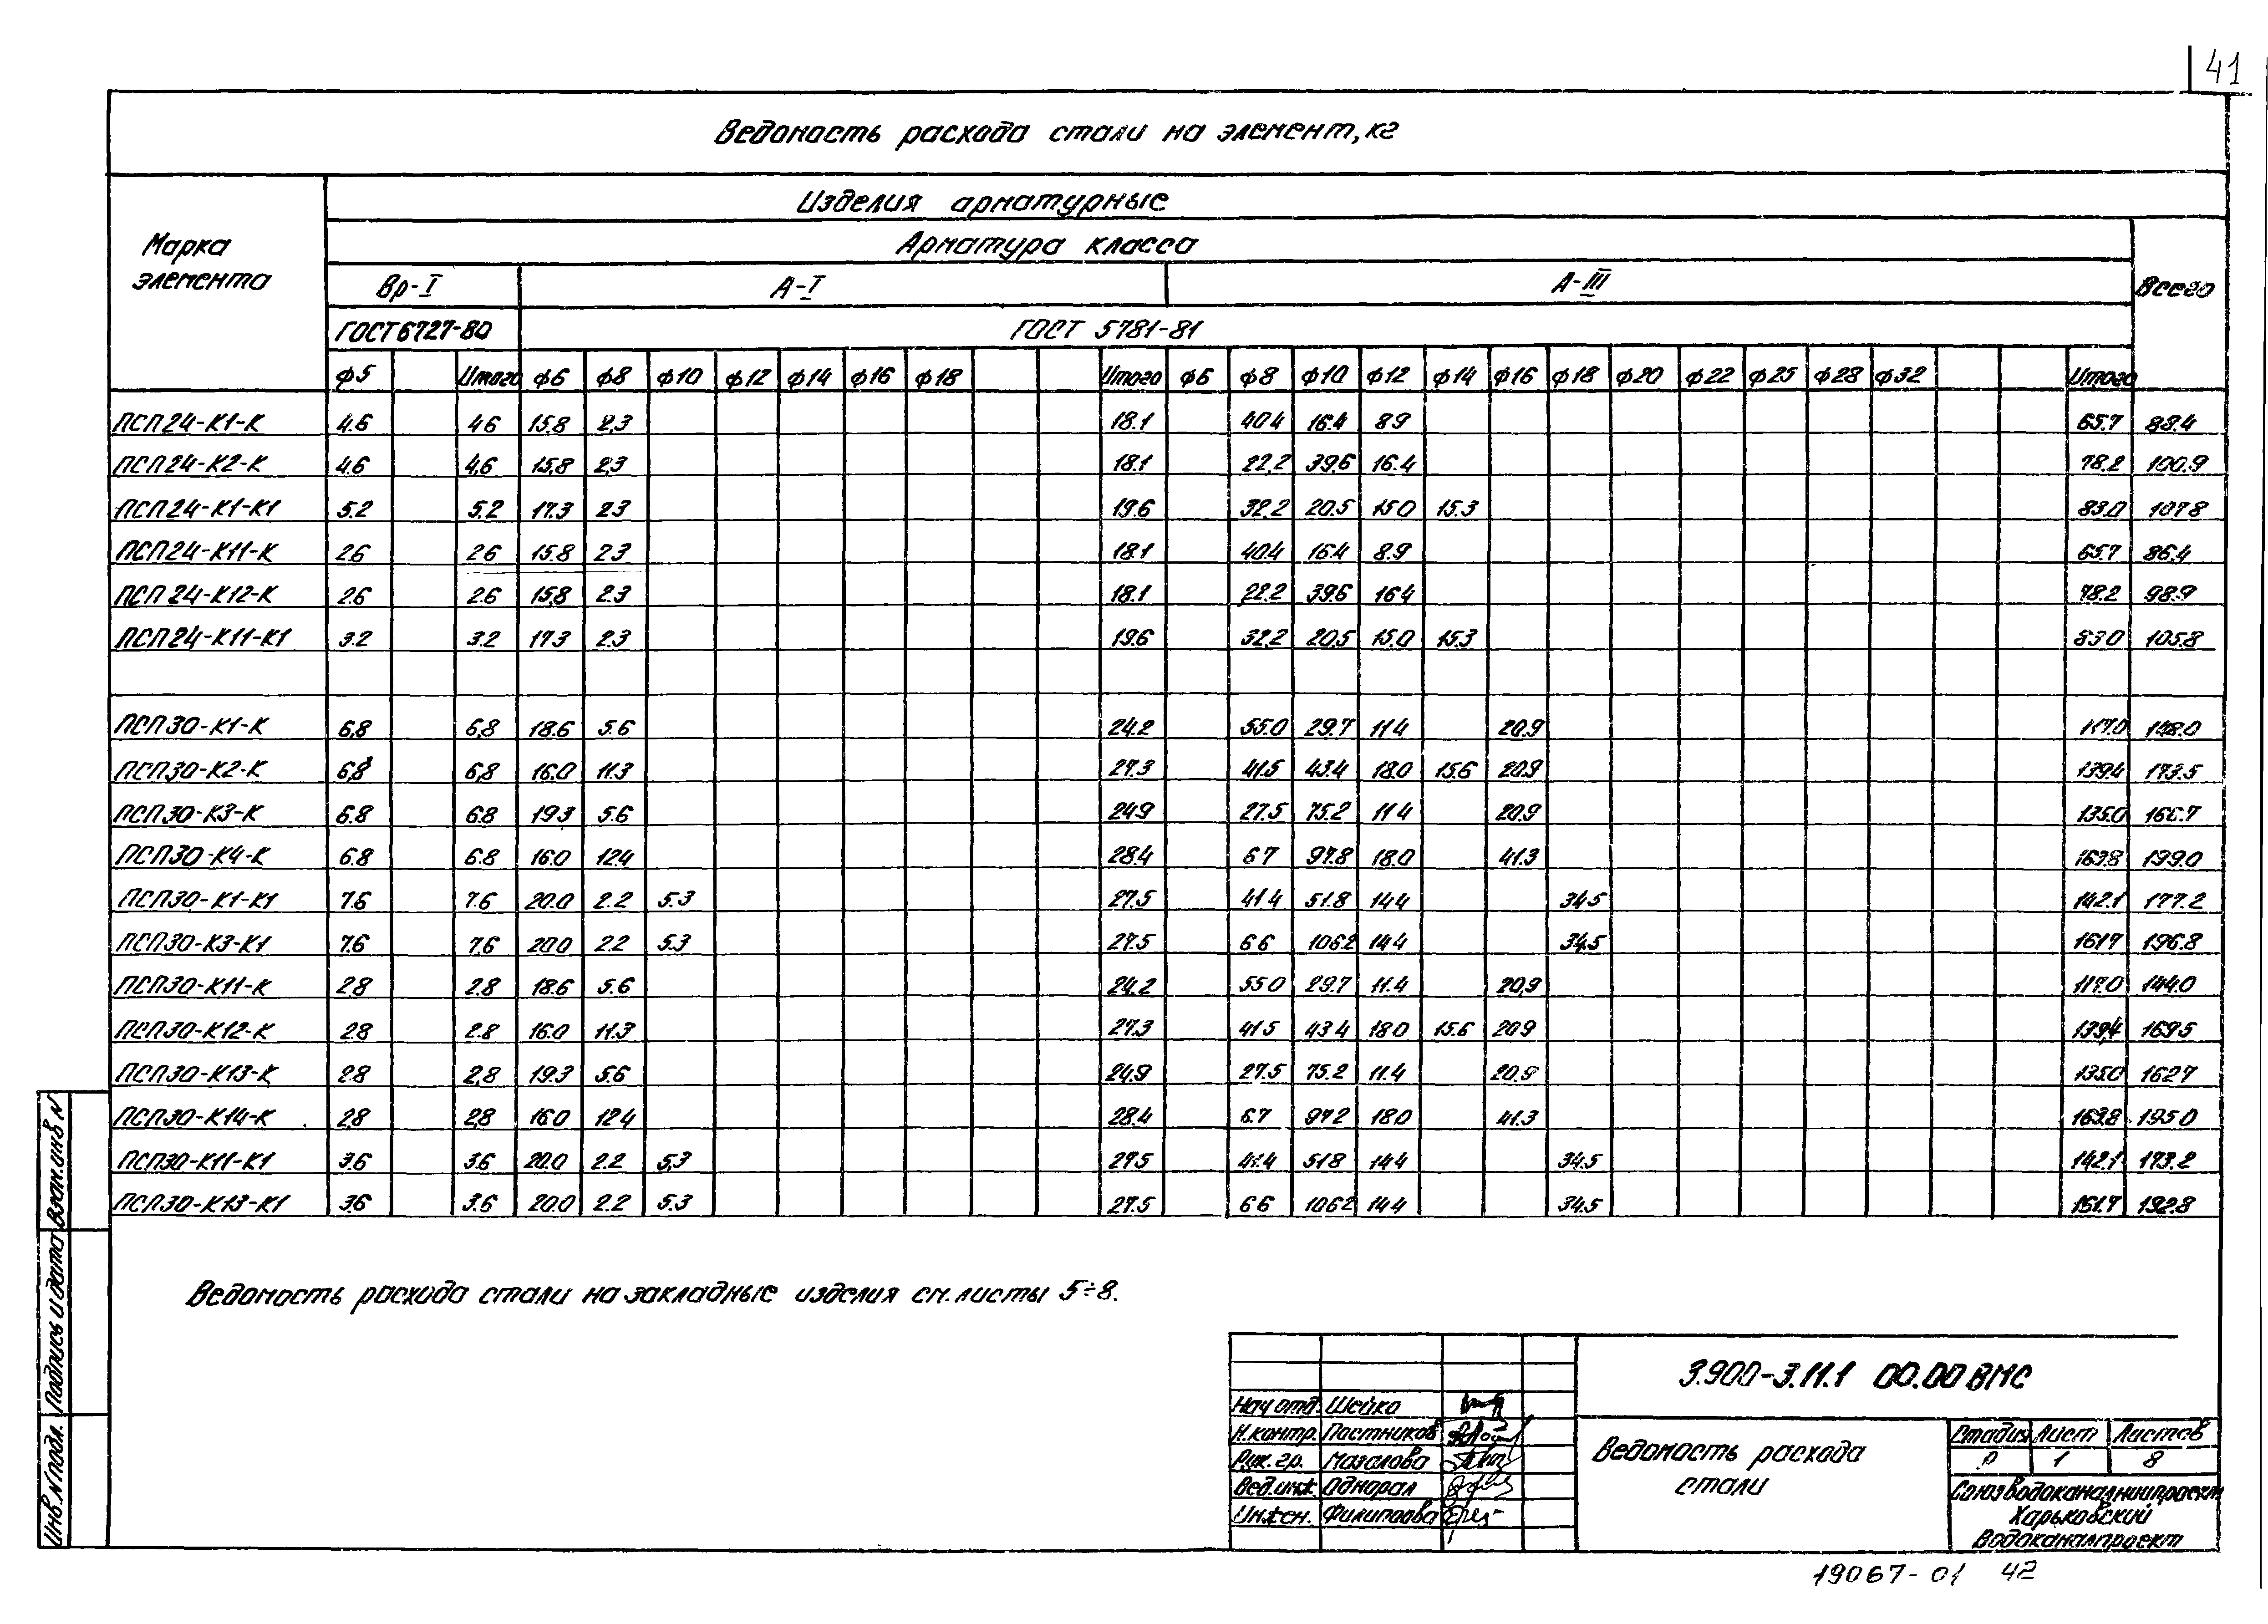 41
Ведомость расхода стали на элемент, кг
Марка элемента
Изделия арматурные
Арматура класса
Вр-I А-I А-III Всего
ГОСТ 6727-80 ГОСТ 5781-81
ф5 Итого ф6 ф8 ф10 ф12 ф14 ф16 ф18 Итого ф6 ф8 ф10 ф12 ф14 ф16 ф18 ф20 ф22 ф25 ф28 ф32 Итого
ПСП24-К1-К 4.6 4.6 15.8 2.3 18.1 40.4 16.4 8.9 65.7 88.4
ПСП24-К2-К 4.6 4.6 15.8 2.3 18.1 22.2 39.6 16.4 78.2 100.9
ПСП24-К1-К1 5.2 5.2 17.3 2.3 19.6 32.2 20.5 15.0 15.3 83.0 107.8
ПСП24-К11-К 2.6 2.6 15.8 2.3 18.1 40.4 16.4 8.9 65.7 86.4
ПСП24-К12-К 2.6 2.6 15.8 2.3 18.1 22.2 39.6 16.4 78.2 98.9
ПСП24-К11-К1 3.2 3.2 17.3 2.3 19.6 32.2 20.5 15.0 15.3 83.0 105.8
ПСП30-К1-К 6.8 6.8 18.6 5.6 24.2 55.0 29.7 11.4 20.9 117.0 148.0
ПСП30-К2-К 6.8 6.8 16.0 11.3 27.3 41.5 43.4 18.0 15.6 20.9 139.4 173.5
ПСП30-К3-К 6.8 6.8 19.3 5.6 24.9 27.5 75.2 11.4 20.9 135.0
ПСП30-К4-К 6.8 6.8 16.0 12.4 28.4 6.7 97.8 18.0 41.3 163.8 199.0
ПСП30-К1-К1 7.6 7.6 20.0 2.2 5.3 27.5 41.4 51.8 14.4 34.5 142.1 177.2
ПСП30-К3-К1 7.6 7.6 20.0 2.2 5.3 27.5 6.6 106.2 14.4 34.5 161.7 196.8
ПСП30-К11-К 2.8 2.8 18.6 5.6 24.2 55.0 29.7 11.4 20.9 117.0 144.0
ПСП30-К12-К 2.8 2.8 16.0 11.3 27.3 41.5 43.4 18.0 15.6 20.9 139.4 169.5
ПСП30-К13-К 2.8 2.8 19.3 5.6 24.9 27.5 75.2 11.4 20.9 135.0 162.7
ПСП30-К14-К 2.8 2.8 16.0 12.4 28.4 6.7 97.2 18.0 41.3 163.8 195.0
ПСП30-К11-К1 3.6 3.6 20.0 2.2 5.3 27.5 41.4 51.8 14.4 34.5 142.1 173.2
ПСП30-К13-К1 3.6 3.6 20.0 2.2 5.3 27.5 6.6 106.2 14.4 34.5 161.7 192.8
Ведомость расхода стали на закладные изделия см. листы 5÷8.
Взам. инв N
Подпись и дата
Инв. N подл.
3.900-3.11.1 00.00 ВМС
Нач отд. Шейко
Н. контр. Постников
Рук. гр. Мазалова
Вед. инж. Однорал
Инжен. Филиппова
Ведомость расхода стали
Стадия Лист Листов
Р 1 8
Союзводоканалниипроект
Харьковский
Водоканалпроект
19067-01 42